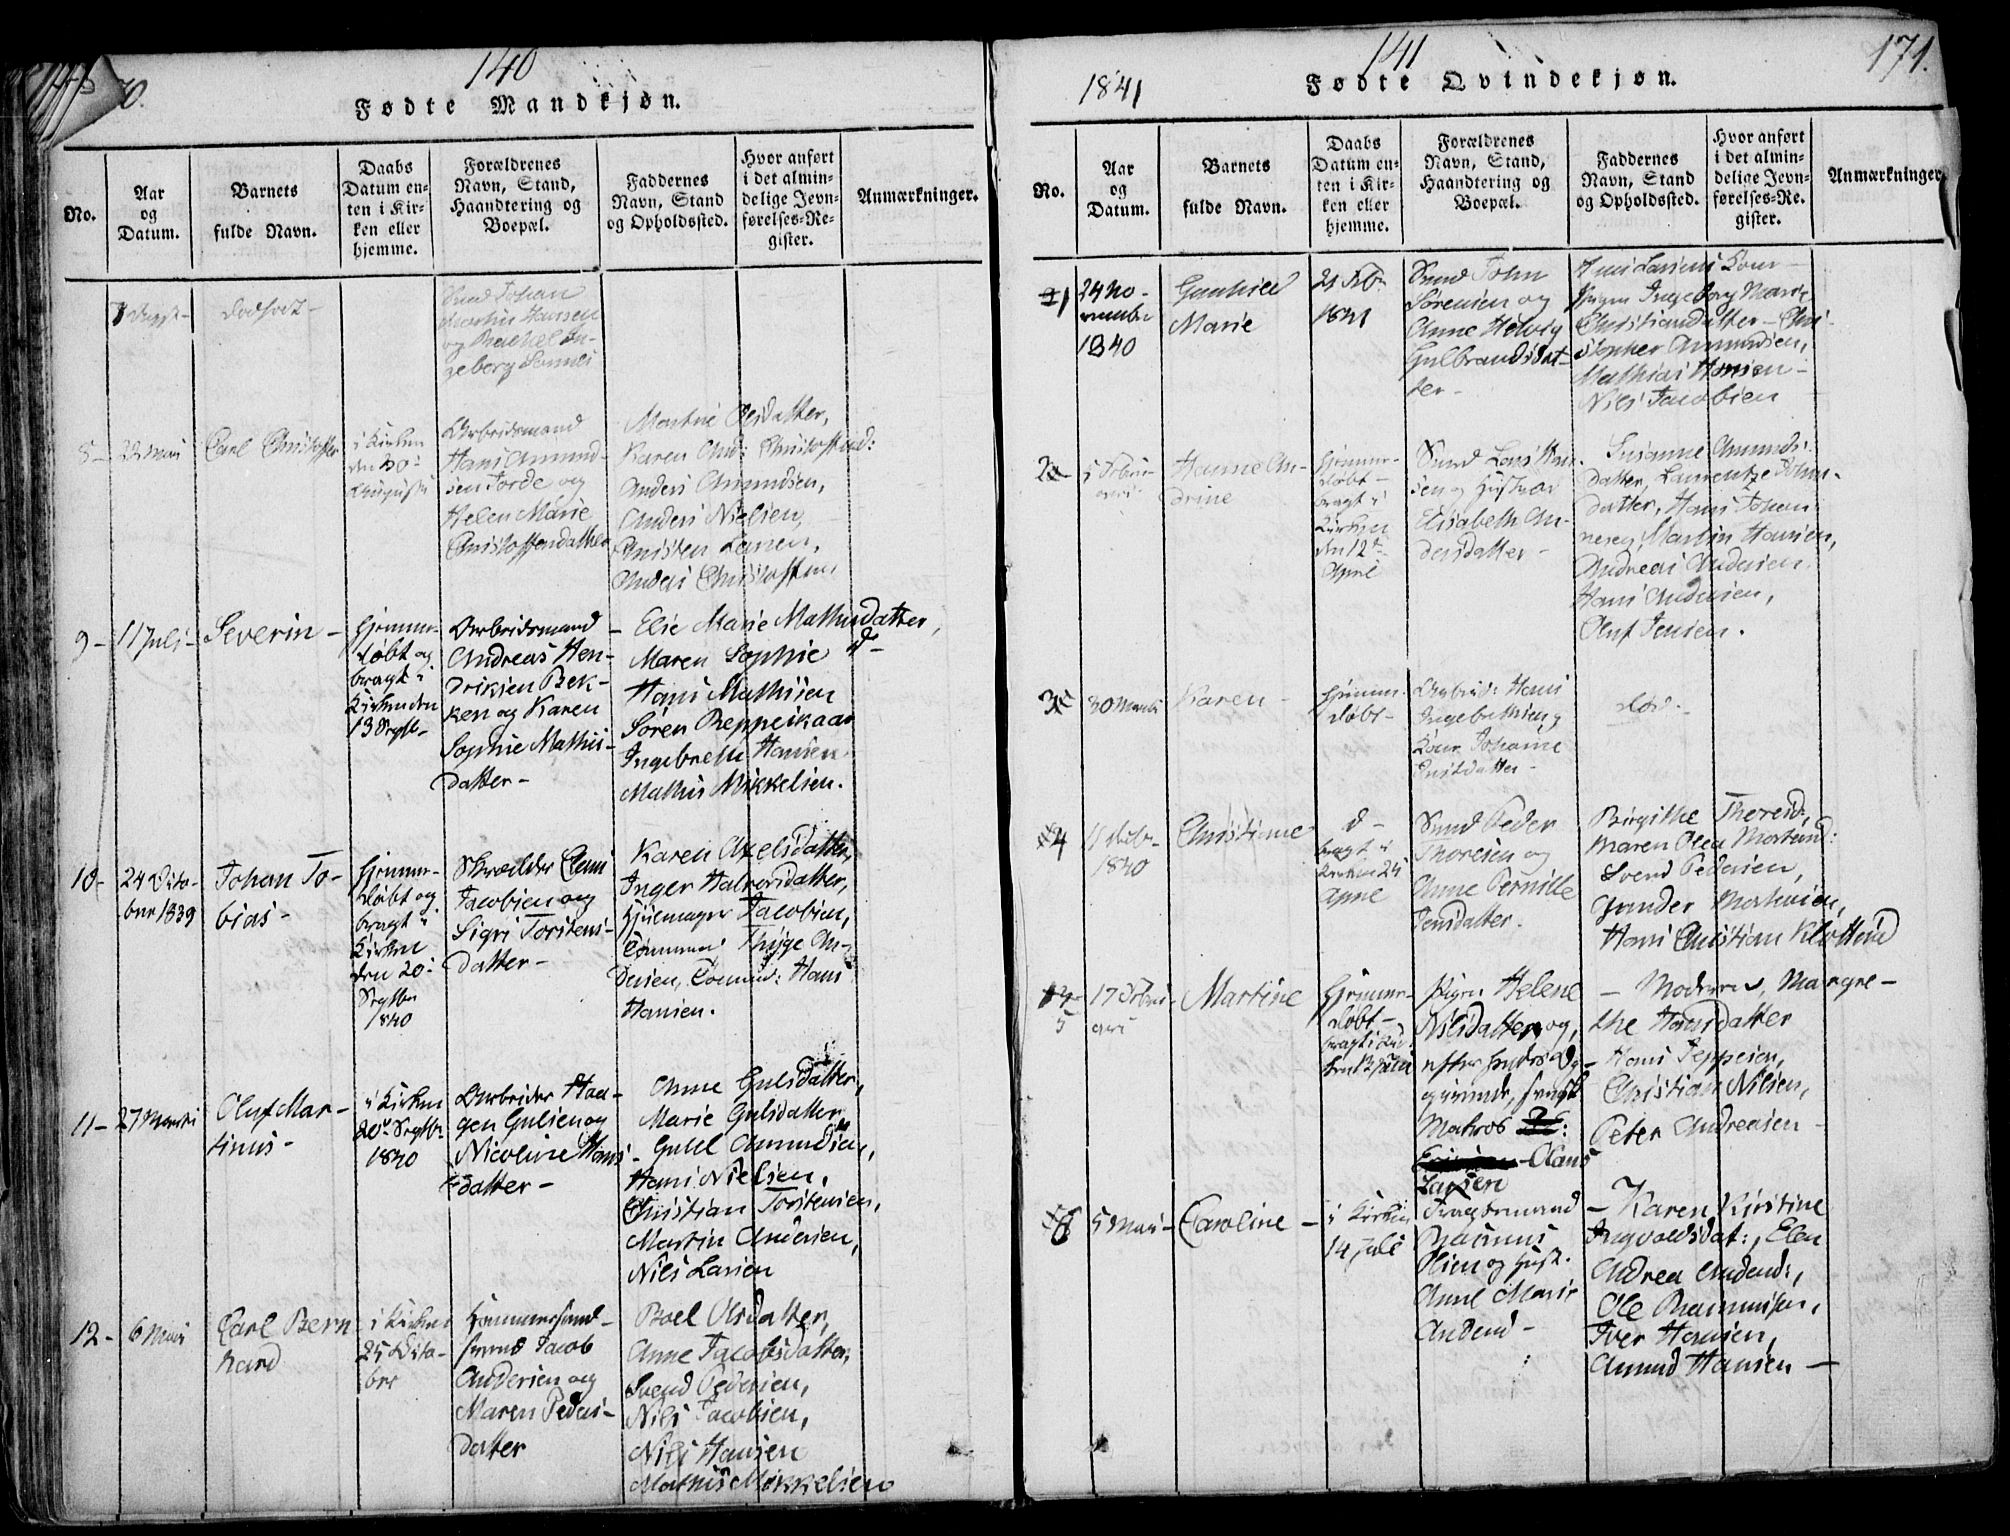 140
Fødte Mandkjøn.
No.
Aar
og
Datum.
Barnets
fulde Navn.
Daabs
Datum en-
ten i Kir-
ken eller
hjemme.
Forældrenes
Navn, Stand,
Haandtering og
Boepæl.
Faddernes
Navn, Stand
og Opholdssted.
Hvor anført
i det almin-
delige Jevn-
førelses-Re-
gister.
Anmærkninger.
dødfødt -
Johan
Martin Hansen
og Rachel In-
geborg
8 -
Carl Christoffer
i Kirken
den 30
Augusti
Arbeidsmand
Hans Amund-
sen Torde og
Helen Marie
Christoffersdatter
Martine Olsdatter,
Karen And: Christoffersd:
Anders Amundsen,
Anders Nielsen,
Christen Larsen,
Anders Christoffersen,
9 - 11 Juli - Severin -
hjemme-
døbt og
bragt i
Kirken den
13 Septb -
Arbeidsmand
Andreas Hen-
driksen Bek-
ken og Karen
Sophie Mathis-
datter -
- Elie Marie Mathisdatter,
Maren Sophie d -
Hans Mathisen
Søren Reppeskaar
Ingebreth Hansen
Mathis Mikkelsen.
10 - 24 Octo-
ber 1839
Johan To-
bias -
hjemme-
døbt og
bragt i
Kirken
den 20
Septbr
1840
Skrædder
Jacobsen og
Sigri Torstens-
datter -
Karen Axelsdatter,
Inger Halvorsdatter,
Hjulmager Jacobsen,
Tømmerm Thyge An-
dersen, Tømmd: Hans
Hansen.
11 - 27 Martii
Oluf Mar-
tinus -
i Kirken
20 Septbr
1840
Arbeider Haa-
gen Gulsen og
Nicoline Hans-
datter -
Anne Gulsdatter,
Marie Gulsdatter,
Amundsen,
Hans Nielsen,
Christian Torstensen,
Martin Andersen,
Nils Larsen
12 - 6 Mai
Carl Bern
hard
i Kirken
25 Octo-
ber
Jacob
Andersen og
Maren Peders-
datter
Boel Olsdatter,
Anne Jacobsdatter,
Svend Pedersen,
Nils Jacobsen,
Nils Hansen
Mathis Mikkelsen
141
171.
1841
Fødte Qvindekjøn.
No.
Aar
og
Datum.
Barnets
fulde Navn.
Daabs
Datum en-
ten i Kir-
ken eller
hjemme.
Forældrenes
Navn, Stand,
Haandtering og
Boepæl.
Faddernes
Navn, Stand
og Opholdssted.
Hvor anført
i det almin-
delige Jevn-
førelses-Re-
gister.
Anmærkninger
1
24 No-
vember
1840
Gunhild
Marie
21 Feb
1841
John
Sørensen og
Anne Helvig
Gulbrandsdat-
ter -
Jens Larsens Kone
Pigen Ingeborg Marie
Christiansdatter - Chri-
stopher Amundsen,
Mathias Hansen -
Nils Jacobsen
2
5 Febru-
arii
Hanne An-
drine
hjemme-
døbt -
bragt i
Kirken
den 12
April
Lars Han-
sen og Hustrue
Elisabeth An-
dersdatter -
Susanne Amunds-
datter, Laurentze Johns-
datter, Hans Johan-
nesen, Martin Hansen,
Andreas Andersen
Hans Andersen,
Oluf Jensen.
3
30 Martii
Karen -
hjemme-
døbt -
Arbeid: Hans
Ingebrethsen og
Kone Johanne
død -
4
1840
Christiane
d -
bragt i
Kirken 25
April
Peder
Thoresen og
Anne Pernille
Jensdatter.
Birgithe Theresd.
Maren Olea Mortensd:
Svend Pedersen,
Gunder Mathisen,
Hans Christian
5
17 Febru-
arii
Martine
hjemme-
døbt -
bragt i Kir-
ken 12 Juli
Pigen Helene
Nilsdatter og,
efter hendes Op-
givende,
Matros
Olaus
Larsen
- Moderen, Margre-
the Hansdatter
Hans Jeppesen,
Christian Nilsen,
Peter Andreasen -
6
5 Mai - Caroline -
i Kirken
14 Juli
Rasmus
Olsen og Hust:
Anne Marie
Andersd -
- Karen Kirstine
Ingvoldsdat:, Elen
Andrea Andersd:,
Ole Rasmussen,
Iver Hansen,
Amund Hansen -